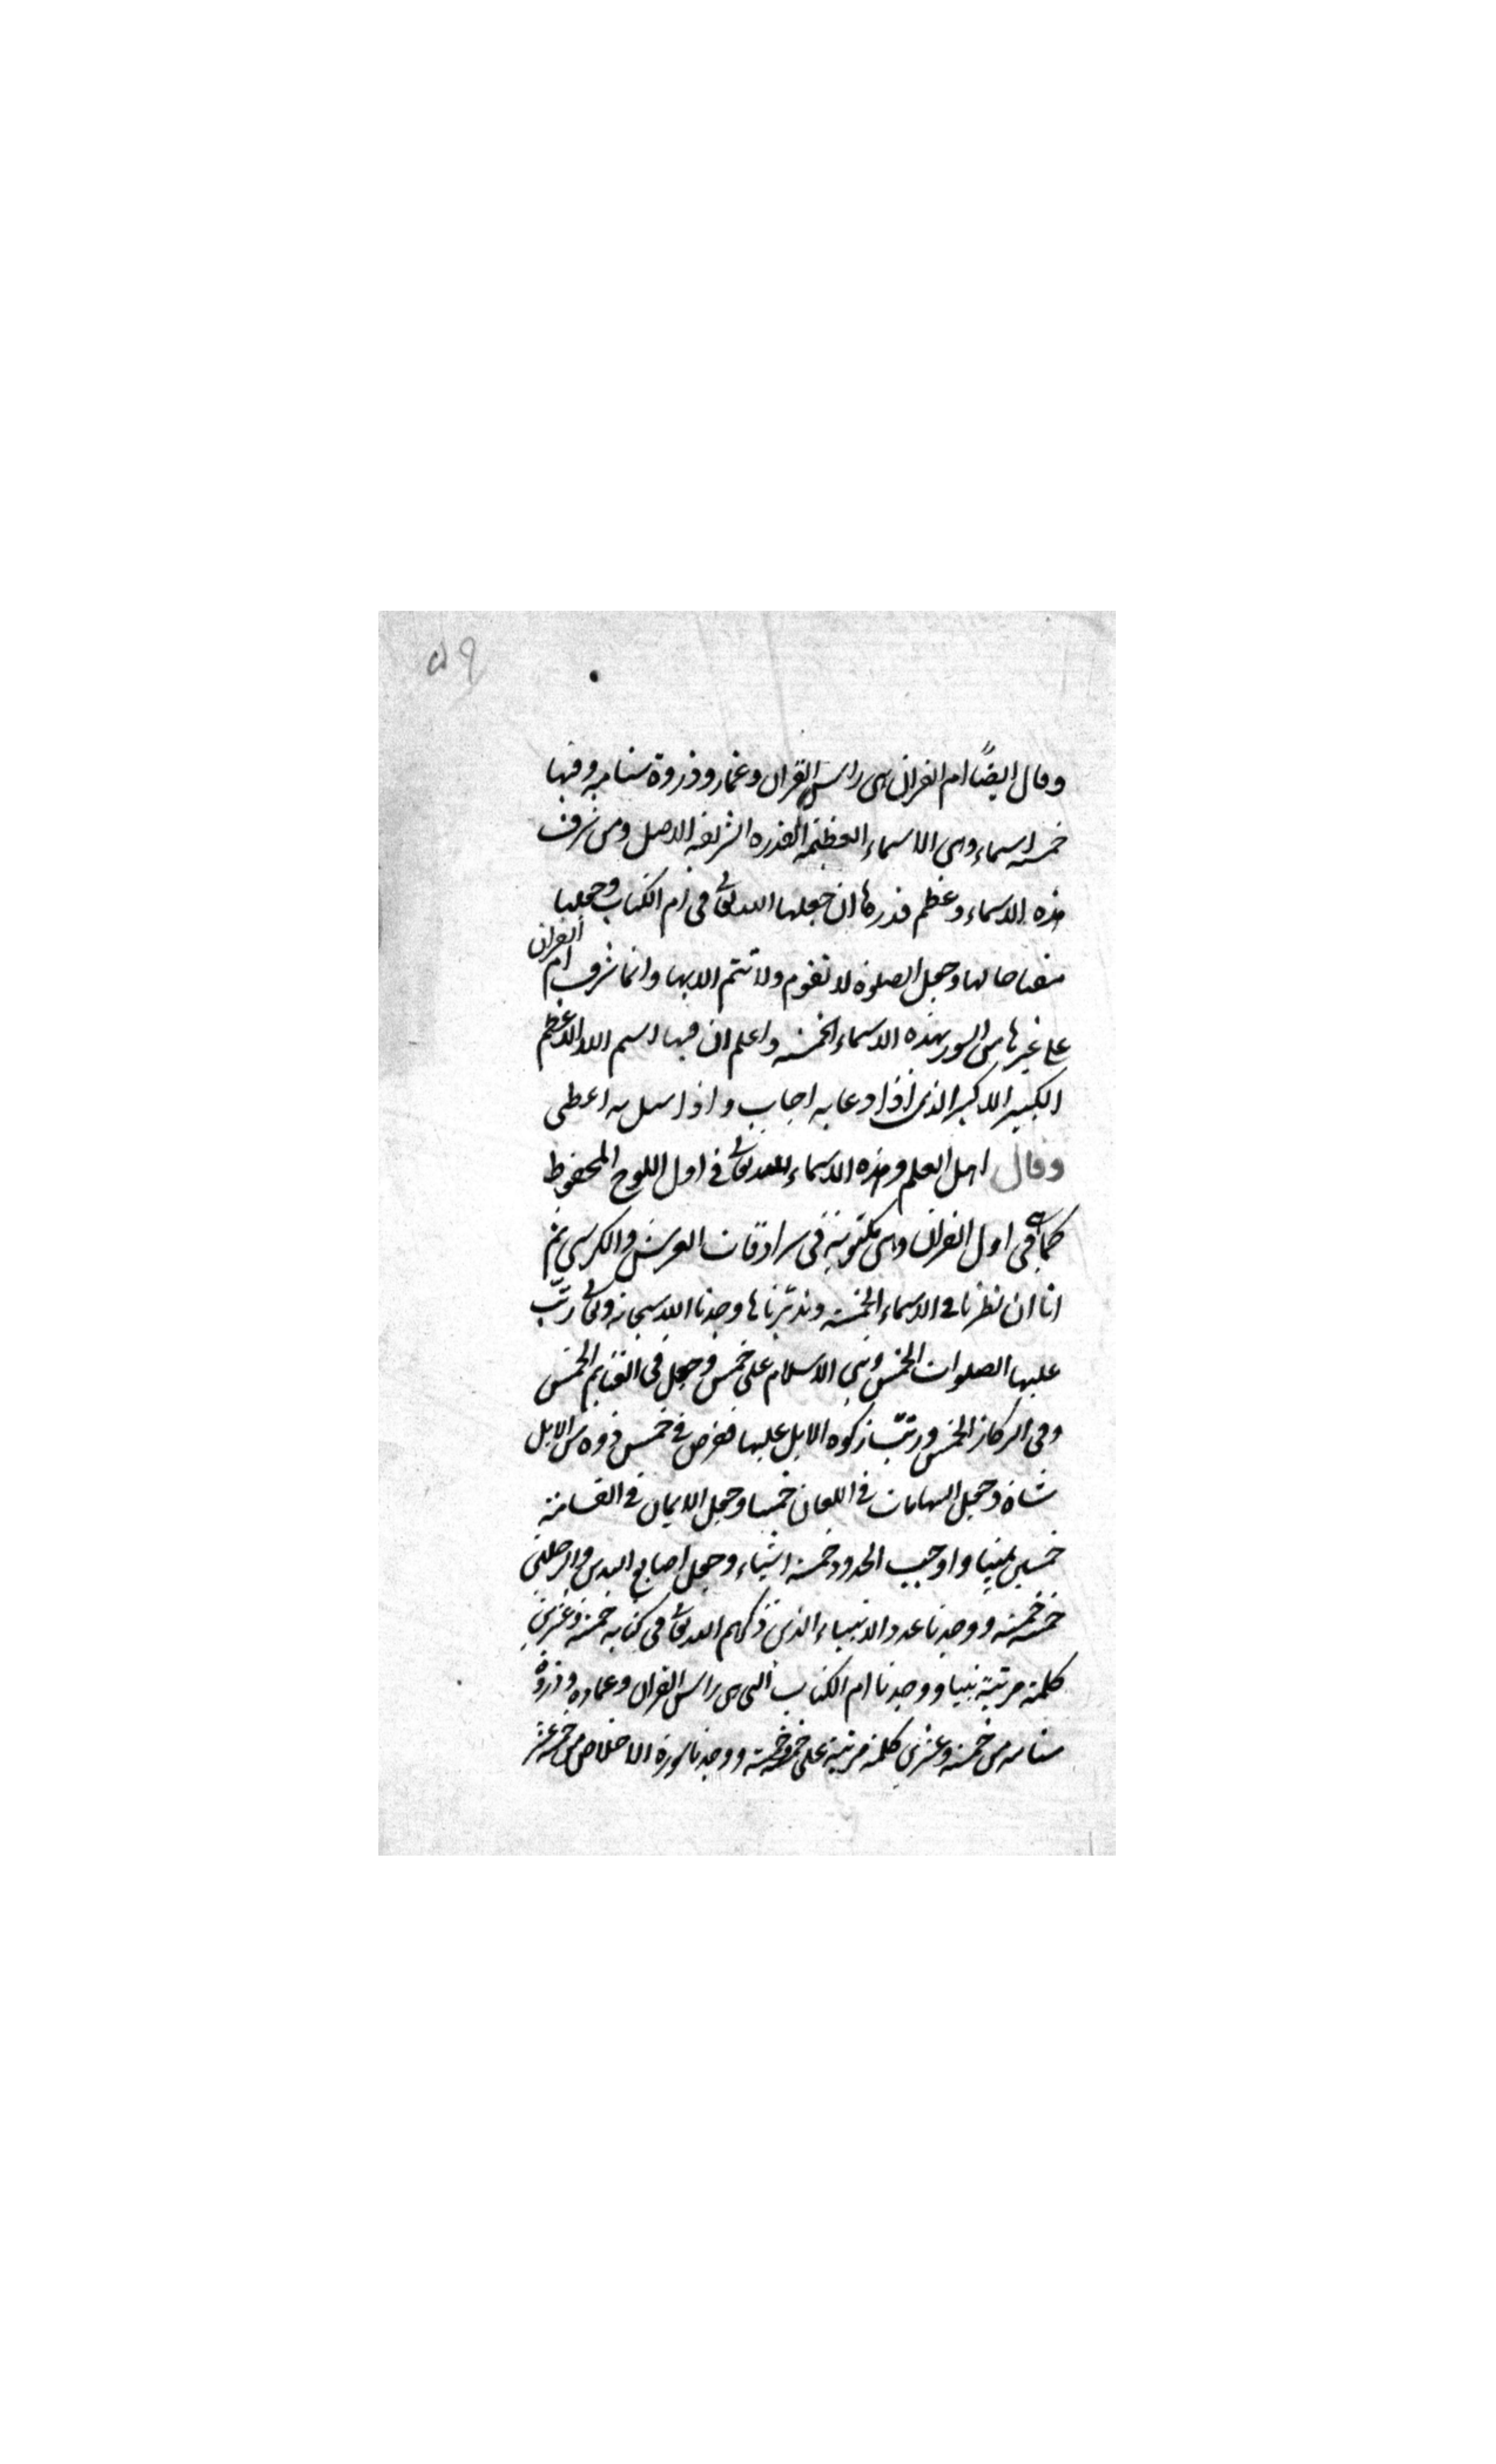 ٥٩
وقال ايضًا ام القران هى راس القران وعماد وذروة سنامه وفيها
خمسة اسماء وهى الاسماء العظيمة القدره الشريفه الاصل ومن شرف
هذه الاسماء وعظم قدرها ان جعلها الله تعالى فى ام الكتاب وجعلها
مفتاحا لها وجعل الصلوة لا تقوم ولا تتم الا بها وانما شرف ام القران
على غيرها من السور بهذه الاسماء الخمسة واعلم ان فيها اسم الله الاعظم
الكبير الاكبر الذى اذا دعا به اجاب واذا سئل به اعطى
وقال اهل العلم وهذه الاسماء لله تعالى فى اول اللوح المحفوظ
كما هى فى اول القران وهى مكتوبة فى سرادقات العرش والكرسى ثم
انا ان نظرنا فى الاسماء الخمسة وتدبرناها وجدنا الله سبحانه وتعالى رتّب
عليها الصلوات الخمس وبنى الاسلام على خمس وجعل فى الغنايم الخمس
وفى الركاز الخمس ورتّب زكوه الابل عليها ففرض فى خمس ذوه من الابل
شاة وجعل الشهادات فى اللعان خمسا وجعل الايمان فى القسامة
خمسين يمينا واوجب الحدود خمسة اشياء وجعل اصابع اليدين والرجلين
خمسة خمسة ووجدنا عدد الانبياء الذين ذكرهم الله تعالى فى كتابه خمسة وعشرين
كلمة مرتبة نبيا ووجدنا ام الكتاب التى هى راس القران وعماده وذروة
سنامه من خمسة وعشرين كلمة مرتبة على خمسة خمسة ووجدنا سورة الاخلاص من خمسة عشر